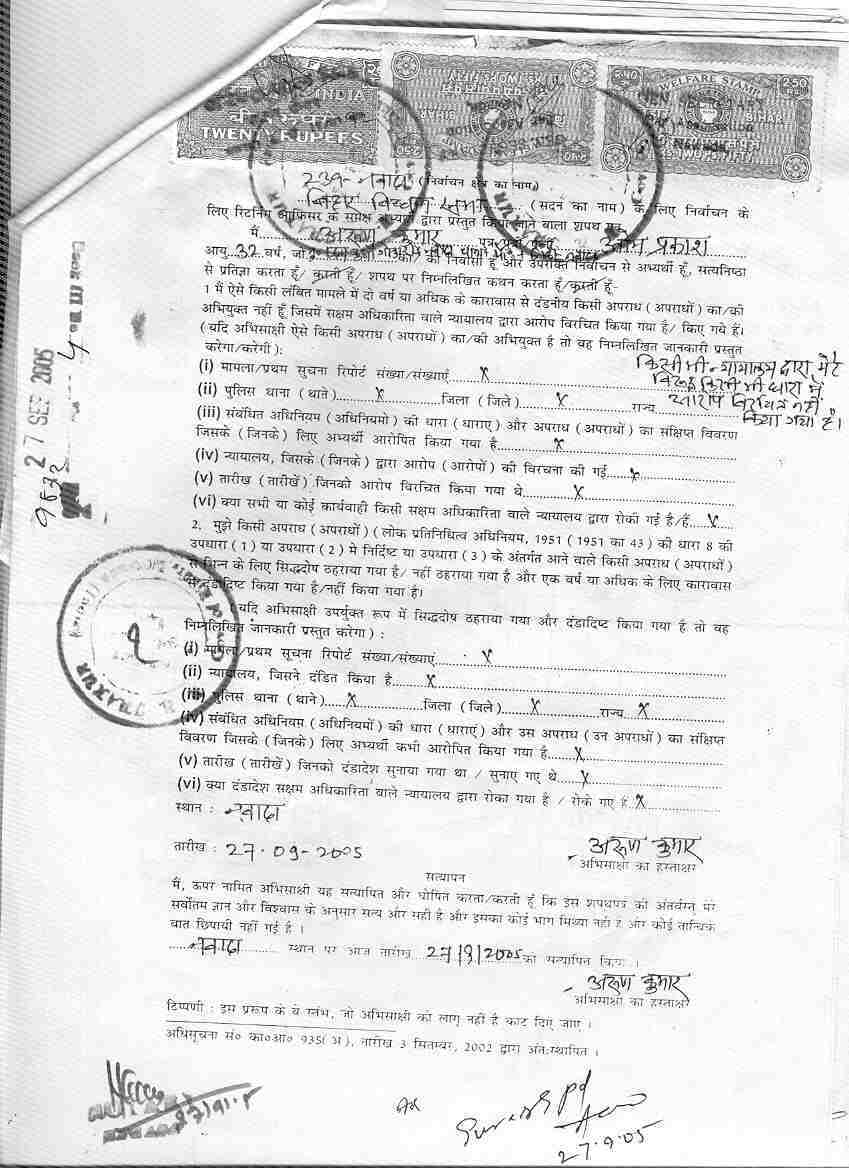 INDIA
TWENTY RUPEES
BIHAR
WELFARE STAMP
250
BIHAR
239 नवादा (निर्वाचन क्षेत्र का नाम)
बिहार विधान सभा (सदन का नाम) के लिए निर्वाचन के
लिए रिटर्निंग ऑफिसर के समक्ष अभ्यर्थी द्वारा प्रस्तुत किया जाने वाला शपथ पत्र
मैं अरूण कुमार पुत्र/पुत्री/पत्नी प्रकाश
आयु 32 वर्ष, जो का/की निवासी हूँ और उपरोक्त निर्वाचन से अभ्यर्थी हूँ, सत्यनिष्ठा
से प्रतिज्ञा करता हूँ/ करती हूँ/ शपथ पर निम्नलिखित कथन करता हूँ/करती हूँ:-
1 मैं ऐसे किसी लंबित मामले में दो वर्ष या अधिक के कारावास से दंडनीय किसी अपराध (अपराधों) का/की
अभियुक्त नहीं हूँ जिसमें सक्षम अधिकारिता वाले न्यायालय द्वारा आरोप विरचित किया गया है/ किए गये हैं।
(यदि अभिसाक्षी ऐसे किसी अपराध (अपराधों) का/की अभियुक्त है तो वह निम्नलिखित जानकारी प्रस्तुत
करेगा/करेगी):
किसी भी न्यायालय द्वारा मेरे
विरूद्ध किसी भी धारा में
आरोप विरचित नहीं
किया गया है।
(i) मामला/प्रथम सुचना रिपोर्ट संख्या/संख्याएं X
(ii) पुलिस थाना (थाते) X जिला (जिले) X राज्य
(iii) संबंधित अधिनियम (अधिनियमो) की धारा (धाराए) और अपराध (अपराधों) का संक्षिप्त विवरण
जिसके (जिनके) लिए अभ्यर्थी आरोपित किया गया है X
(iv) न्यायालय, जिसके (जिनके) द्वारा आरोप (आरोपों) की विरचना की गई X
(v) तारीख (तारीखें) जिनको आरोप विरचित किया गया थे X
(vi) क्या सभी या कोई कार्यवाही किसी सक्षम अधिकारिता वाले न्यायालय द्वारा रोकी गई है/हैं X
27 SEP 2005
2. मुझे किसी अपराध (अपराधों) (लोक प्रतिनिधित्व अधिनियम, 1951 (1951 का 43) की धारा 8 की
उपधारा (1) या उपधारा (2) मे निर्दिष्ट या उपधारा (3) के अंतर्गत आने वाले किसी अपराध (अपराधों)
से भिन्न के लिए सिद्धदोष ठहराया गया है/ नहीं ठहराया गया है और एक वर्ष या अधिक के लिए कारावास
से दंडादिष्ट किया गया है/नहीं किया गया है।
(यदि अभिसाक्षी उपर्युक्त रूप में सिद्धदोष ठहराया गया और दंडादिष्ट किया गया है तो वह
निम्नलिखित जानकारी प्रस्तुत करेगा):
(i) मामला/प्रथम सूचना रिपोर्ट संख्या/संख्याएं X
(ii) न्यायालय, जिसने दंडित किया है X
(iii) पुलिस थाना (थाने) X जिला (जिले) X राज्य X
(iv) संबंधित अधिनियम (अधिनियमों) की धारा (धाराएं) और उस अपराध (उन अपराधों) का संक्षिप्त
विवरण जिसके (जिनके) लिए अभ्यर्थी कभी आरोपित किया गया है X
(v) तारीख (तारीखें) जिनको दंडादेश सुनाया गया था / सुनाए गए थे X
(vi) क्या दंडादेश सक्षम अधिकारिता वाले न्यायालय द्वारा रोका गया है / रोके गए हैं X
स्थान : नवादा
तारीख : 27.09-2005 अरूण कुमार
अभिसाक्षी का हस्ताक्षर
सत्यापन
मैं, ऊपर नामित अभिसाक्षी यह सत्यापित और घोषित करता/करती हूँ कि इस शपथपत्र की अंतर्वस्तु मेरे
सर्वोतम ज्ञान और विश्वास के अनुसार सत्य और सही है और इसका कोई भाग मिथ्या नही है और कोई तात्विक
बात छिपायी नहीं गई है।
नवादा स्थान पर आज तारीख 27/9/2005 को सत्यापित किया।
अरूण कुमार
अभिसाक्षी का हस्ताक्षर
टिप्पणी : इस प्ररूप के वे स्तंभ, जो अभिसाक्षी को लागू नहीं है काट दिए जाए।
अधिसूचना सं० का०आ० 935(अ), तारीख 3 सितम्बर, 2002 द्वारा अंतःस्थापित।
27.9.05